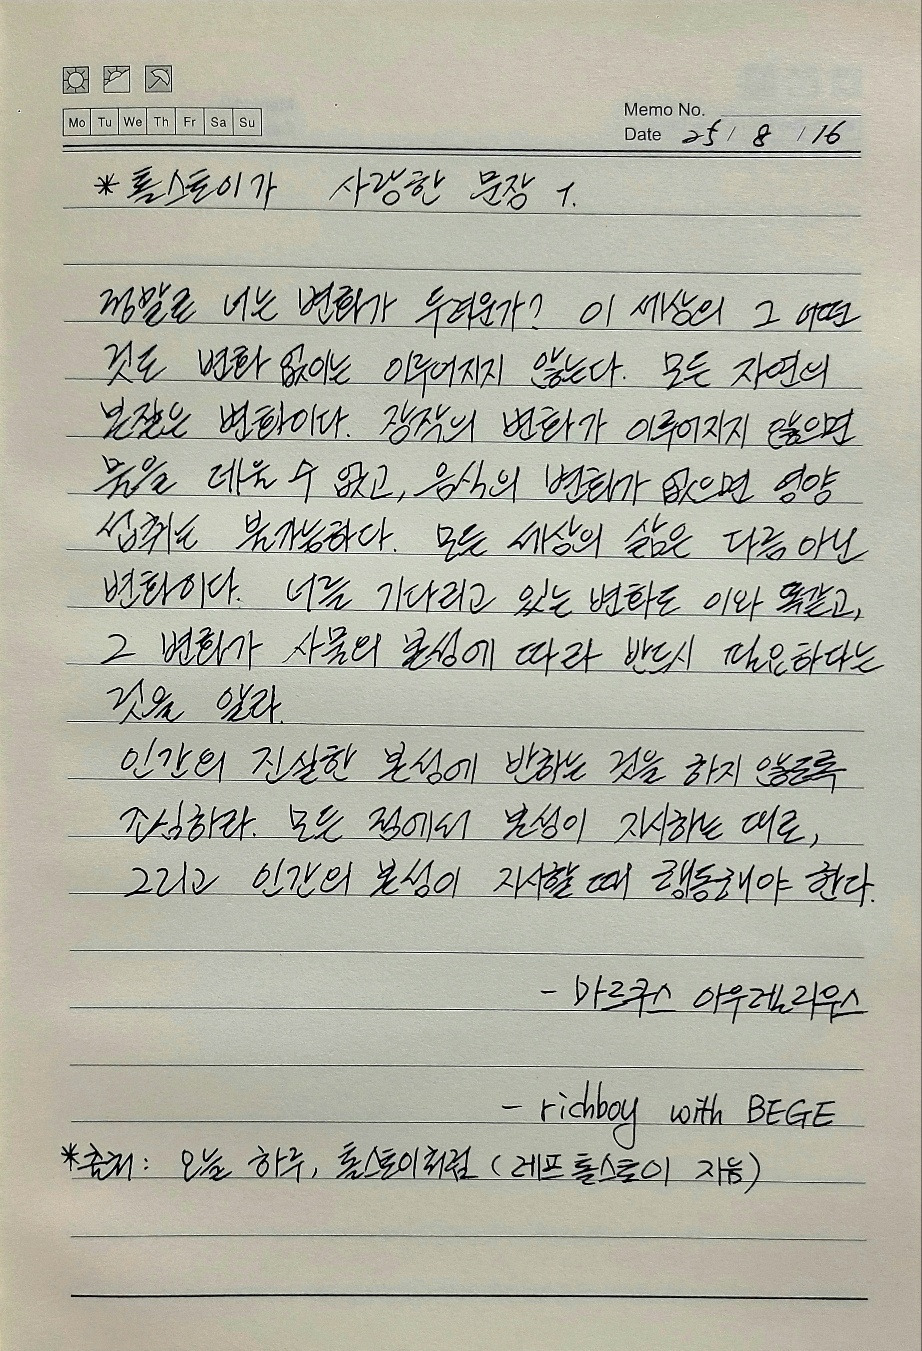 Mo Tu We Th Fr Sa Su
Memo No.
Date 25 / 8 / 16
*톨스토이가 사랑한 문장 1.
정말로 너는 변화가 두려운가? 이 세상의 그 어떤
것도 변화 없이는 이루어지지 않는다. 모든 자연의
본질은 변화이다. 장작의 변화가 이루어지지 않으면
물을 데울 수 없고, 음식의 변화가 없으면 영양
섭취는 불가능하다. 모든 세상의 삶은 다름 아닌
변화이다. 너를 기다리고 있는 변화도 이와 똑같고,
그 변화가 사물의 본성에 따라 반드시 필요하다는
것을 알라.
인간의 진실한 본성에 반하는 것을 하지 않도록
조심하라. 모든 점에서 본성이 지시하는 대로,
그리고 인간의 본성이 지시할 때 행동해야 한다.
- 마르쿠스 아우렐리우스
- richboy with BEGE
*출처: 오늘 하루, 톨스토이처럼 (레프 톨스토이 지음)